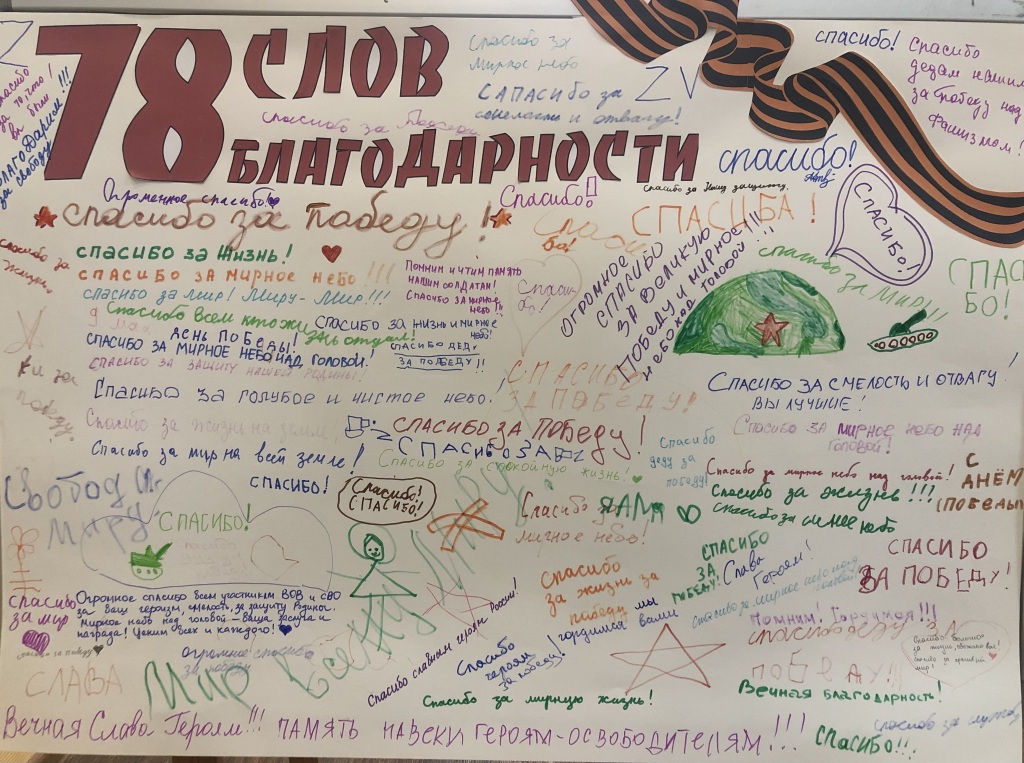 78 СЛОВ
БЛАГОДАРНОСТИ
Z
спасибо за
мирное небо
САПАСИБО за
смелость и отвагу!
ZV
спасибо!
Спасибо
дедам нашим
за победу над
фашизмом!
Спасибо
за то, что
вы были
БЛАГОДАРИМ!!!
за свободу
спасибо за Победу
спасибо!
Спасибо за нашу защиту.
Огромное спасибо!
Спасибо!
спасибо за Победу!
СПАСИБА!
Спаси
бо!
СПАСИБО!
Спасибо за
жизнь!
спасибо за Жизнь!
СПАСИБО ЗА МИРНОЕ НЕБО!!!
спасибо за мир! Миру-Мир!!!
Помним и чтим память
нашим солдатам!
Спасибо за мирное
небо!!
Спаси-
бо!
ОГРОМНОЕ
СПАСИБО
ЗА ВЕЛИКУЮ
ПОБЕДУ И МИРНОЕ
НЕБО НАД ГОЛОВОЙ!!!
спасибо за Мир!
СПАС
БО!
9 Мая
Спасибо всем кто
ДЕНЬ ПОБЕДЫ!
СПАСИБО ЗА МИРНОЕ НЕБО НАД ГОЛОВОЙ!
СПАСИБО ЗА ЖИЗНЬ И МИРНОЕ
НЕБО!
СПАСИБО ДЕДУ
ЗА ПОБЕДУ!!
СПАСИБО ЗА ЗАЩИТУ НАШЕЙ РОДИНЫ!
за
победу!
Спасибо за голубое и чистое небо.
СПАСИБО
ЗА ПОБЕДУ!
СПАСИБО ЗА СМЕЛОСТЬ И ОТВАГУ!
ВЫ ЛУЧШИЕ!
Спасибо за жизнь на земле!
СПАСИБО ЗА ПОБЕДУ!
СПАСИБО ЗА МИРНОЕ НЕБО НАД
ГОЛОВОЙ!
Спасибо за мир на всей земле!
СПАСИБО ЗА
Спасибо за спокойную жизнь!
спасибо
деду за
победу!
Спасибо за мирное небо над головой!
С
ДНЁМ
ПОБЕДЫ
Спасибо за жизнь!!!
спасибо за синее небо
СПАСИБО!
Спасибо!
СПАСИБО!
Свобод
Миру
СПАСИБО!
Спасибо
мирное небо!
СПАСИБО
ЗА
ПОБЕДУ!
Слава
Героям!
СПАСИБО
ЗА ПОБЕДУ!
Спасибо
за жизнь за
победу
мы
гордимся вами
Спасибо за мирное небо над
головой!
Спасибо
за мир
Огромное спасибо всем участникам ВОВ и СВО
за ваш героизм, смелость, за защиту Родины.
Мирное небо над головой - ваша заслуга и
награда! Ценим всех и каждого!
Помним! Гордимся!!!
спасибо деду за
победу!!
спасибо за победу
огромное спасибо
за победу
СЛАВА
Мир всему Миру
Спасибо славным героям
России!
Спасибо
героям
за победу!
Спасибо за мирную жизнь!
Вечная благодарность!
Вечная Слава Героям!!! ПАМЯТЬ НАВЕКИ ГЕРОЯМ-ОСВОБОДИТЕЛЯМ!!!
СПАСИБО!!!
спасибо за